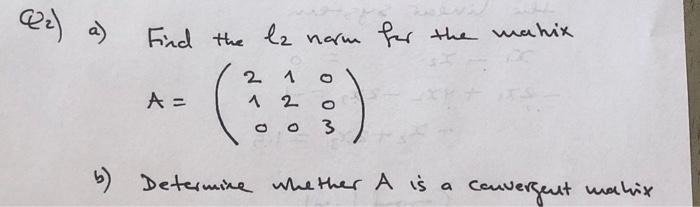 Q2) a) Find the l2 norm for the matrix
A = ( 2 1 0
1 2 0
0 0 3 )
b) Determine whether A is a convergent matrix